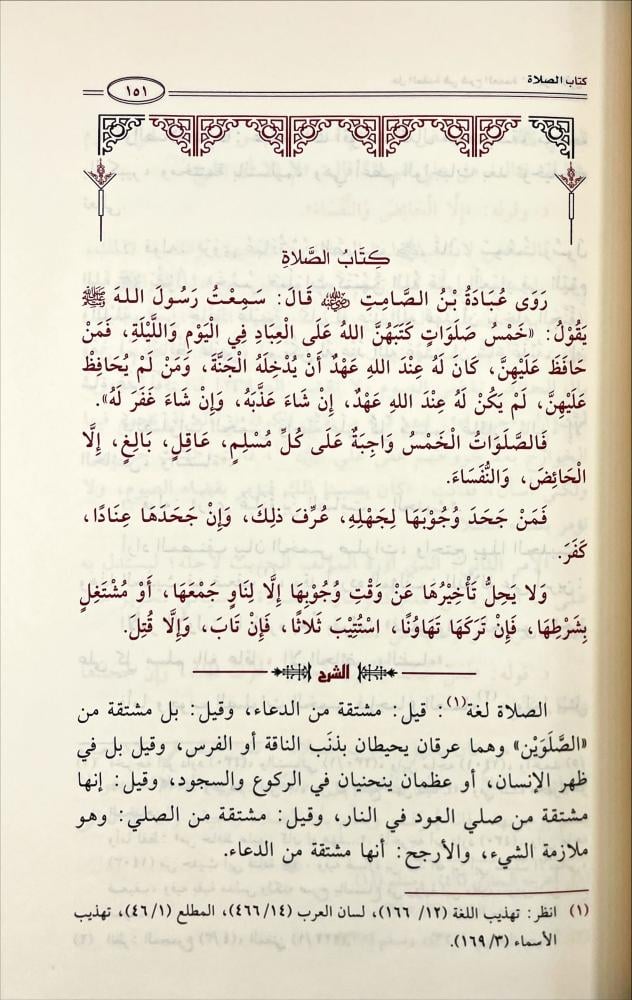 كتاب الصلاة
١٥١
كِتَابُ الصَّلَاةِ
رَوَى عُبَادَةُ بْنُ الصَّامِتِ ﵁ قَالَ: سَمِعْتُ رَسُولَ اللهِ ﷺ
يَقُولُ: «خَمْسُ صَلَوَاتٍ كَتَبَهُنَّ اللهُ عَلَى الْعِبَادِ فِي الْيَوْمِ وَاللَّيْلَةِ، فَمَنْ
حَافَظَ عَلَيْهِنَّ، كَانَ لَهُ عِنْدَ اللهِ عَهْدٌ أَنْ يُدْخِلَهُ الْجَنَّةَ، وَمَنْ لَمْ يُحَافِظْ
عَلَيْهِنَّ، لَمْ يَكُنْ لَهُ عِنْدَ اللهِ عَهْدٌ، إِنْ شَاءَ عَذَّبَهُ، وَإِنْ شَاءَ غَفَرَ لَهُ».
فَالصَّلَوَاتُ الْخَمْسُ وَاجِبَةٌ عَلَى كُلِّ مُسْلِمٍ، عَاقِلٍ، بَالِغٍ، إِلَّا
الْحَائِضَ، وَالنُّفَسَاءَ.
فَمَنْ جَحَدَ وُجُوبَهَا لِجَهْلِهِ، عُرِّفَ ذلِكَ، وَإِنْ جَحَدَهَا عِنَادًا،
كَفَرَ.
وَلا يَحِلُّ تَأْخِيرُهَا عَنْ وَقْتِ وُجُوبِهَا إِلَّا لِنَاوٍ جَمْعَهَا، أَوْ مُشْتَغِلٍ
بِشَرْطِهَا، فَإِنْ تَرَكَهَا تَهَاوُنًا، اسْتُتِيْبَ ثَلاثًا، فَإِنْ تَابَ، وَإِلَّا قُتِلَ.
الشرح
الصلاة لغة(١): قيل: مشتقة من الدعاء، وقيل: بل مشتقة من
«الصَّلَوَيْن» وهما عرقان يحيطان بذنَب الناقة أو الفرس، وقيل بل في
ظهر الإنسان، أو عظمان ينحنيان في الركوع والسجود، وقيل: إنها
مشتقة من صلي العود في النار، وقيل: مشتقة من الصلي: وهو
ملازمة الشيء، والأرجح: أنها مشتقة من الدعاء.
(١) انظر: تهذيب اللغة (١٢/ ١٦٦)، لسان العرب (١٤/ ٤٦٦)، المطلع (١/ ٤٦)، تهذيب
الأسماء (٣/ ١٦٩).